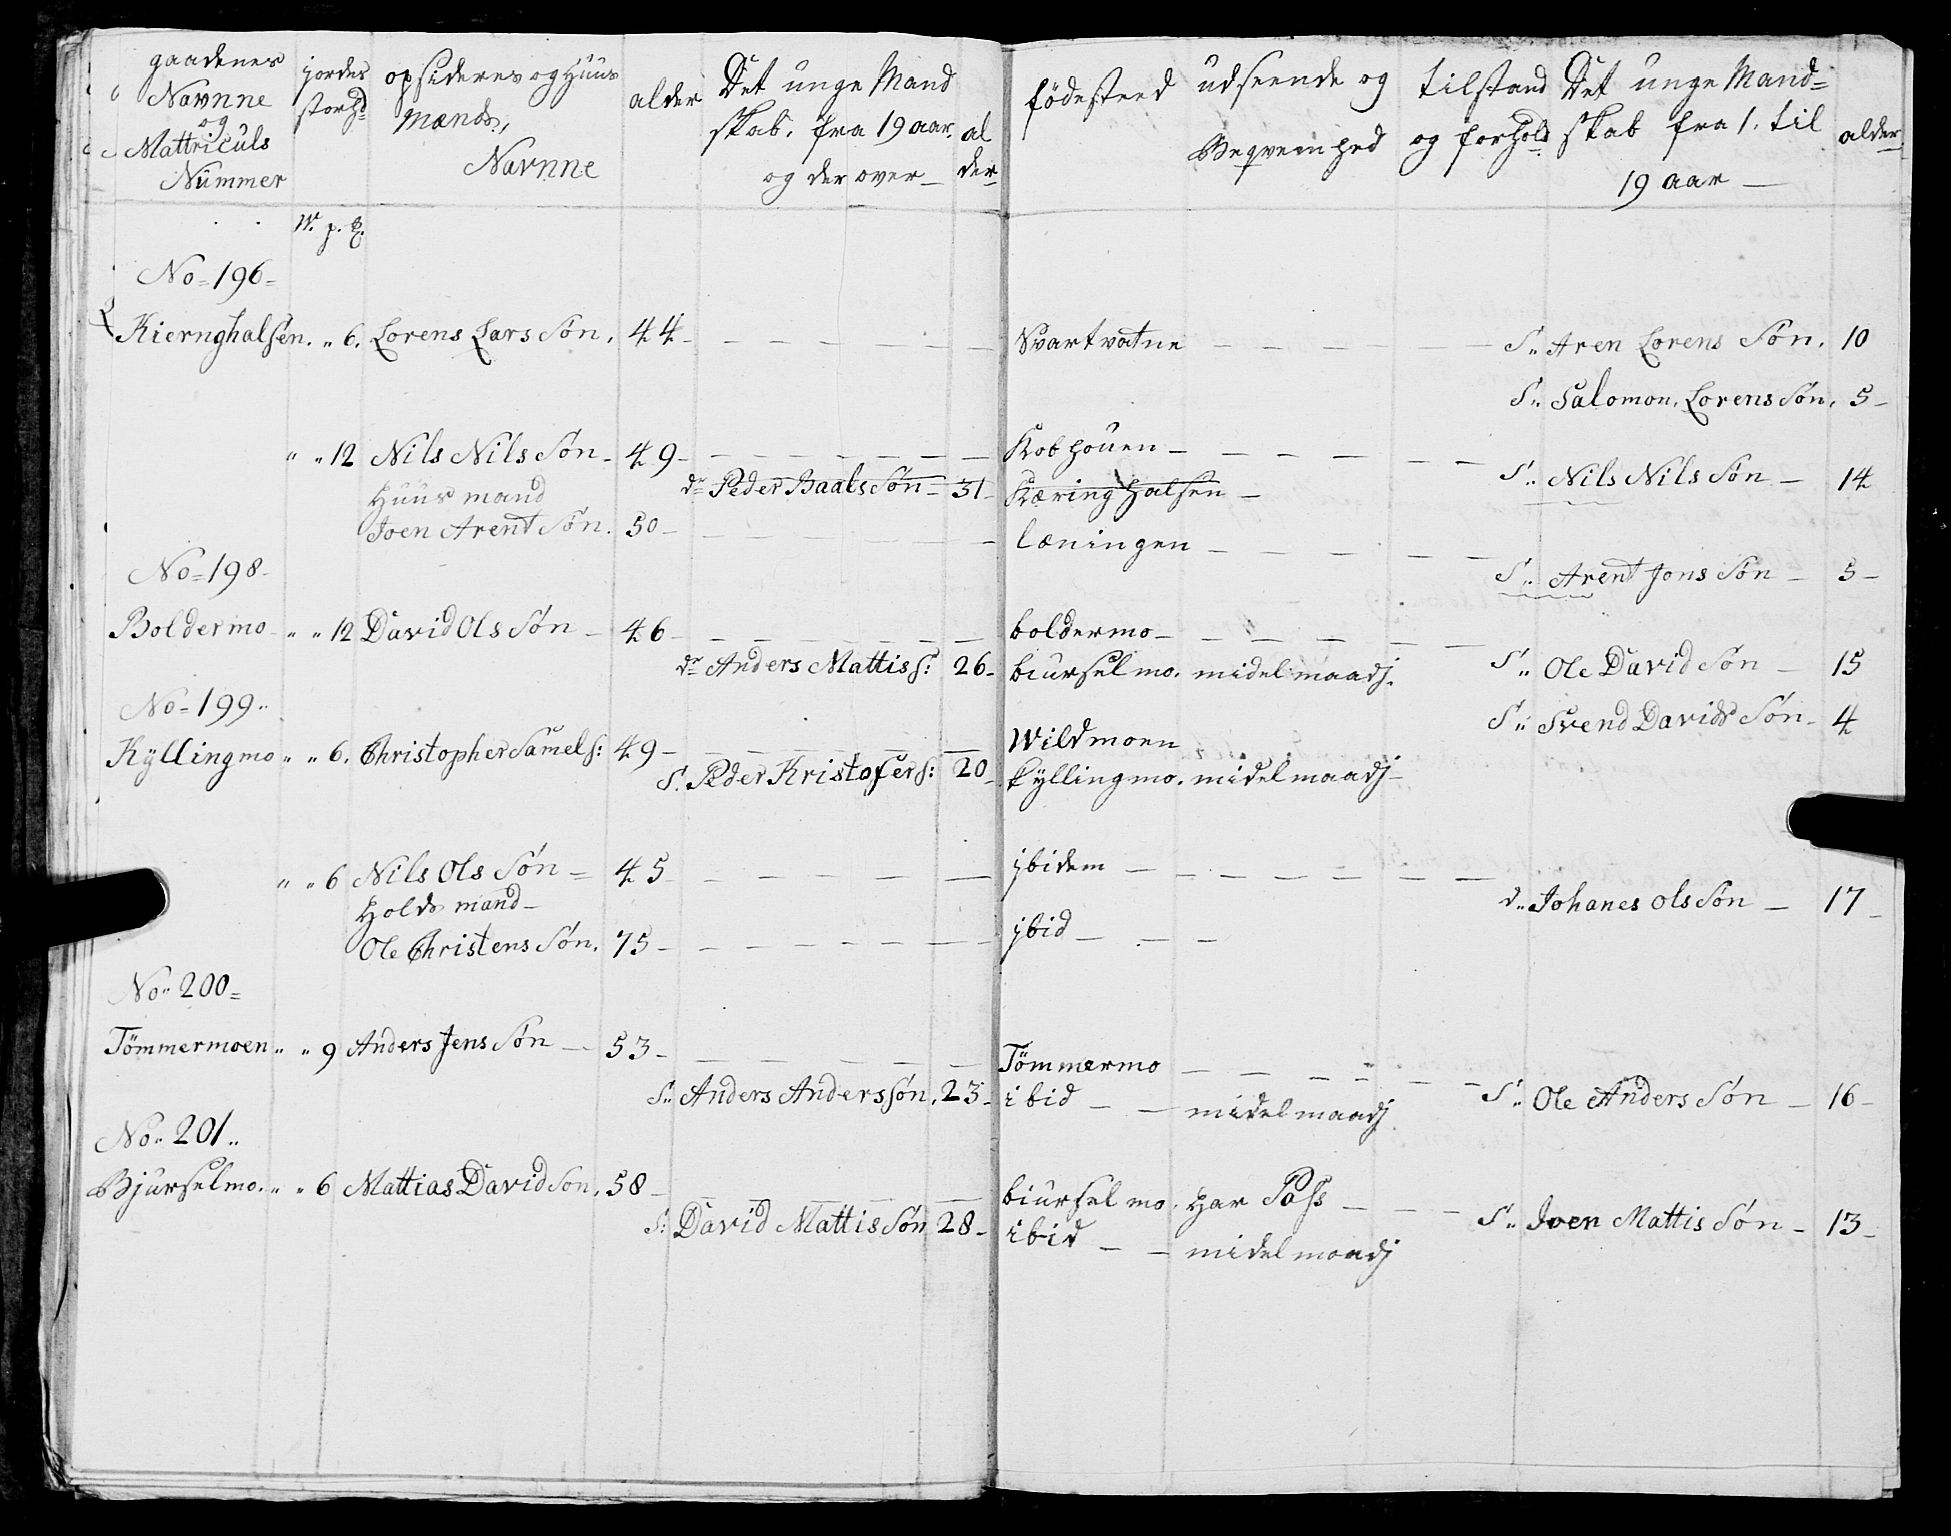 gaadenes Navnne og Mattriculs Nummer
jordes storhd
opsideres og Huus Mænds, Navnne
alder
Det unge Mand skab, fra 19 aar og der over _
al der
födesteed
udseende og Beqvemhed
tilstand og forhold
Det unge Mand= skab fra 1. til 19 aar _
alder
W. p.
No = 196 =
Kiernghalsen. " 6. Lorens Lars Søn. 44 _ Svartvatne S.. Aren Lorens Søn. 10
S.. Salomon. Lorens Søn. 5 _
" " 12 Nils Nils Søn _ 49 _ Kobhouen _ S.. Nils Nils Søn _ 14
Huus mand dr Peder Baals Søn _ 31 _ Kæringhalsen _
Joen Arent Søn. 50 _ læningen _ S.. Arent Jons Søn _ 5 _
No = 198 _
Boldermo _ " " 12 David Ols Søn _ 46 _ boldermo _ S.. Ole David Søn _ 15
dr Anders Mattis S: 26 _ biurselmo. midelmaadj.
S.. Svend Davids Søn _ 4
No = 199 ..
Kyllingmo " " 6. Christopher Samels: 49 _ Wildmoen
S. Peder Kristofers: 20 _ kyllingmo. midelmaadj _
" " 6 Nils Ols Søn = 45 _ jbidem _ d.. Johanes Ols Søn _ 17 _
Holds mand _
Ole Christens Søn. 75 _ jbid _
No.. 200 =
Tömmermoen " " 9 Anders Jens Søn _ 53 _ Tömmermo _ S.. Ole Anders Søn _ 16 _
S.. Anders Anderssøn. 23 _ ibid _ _ midelmaadj
No.. 201 ..
Bjurselmo. " " 6 Mattias David Søn. 58 _ biurselmo. har Pass _ S.. Joen Mattis Søn _ 13 _
S: David Mattis Søn 28 _ ibid _ _ midelmaadj